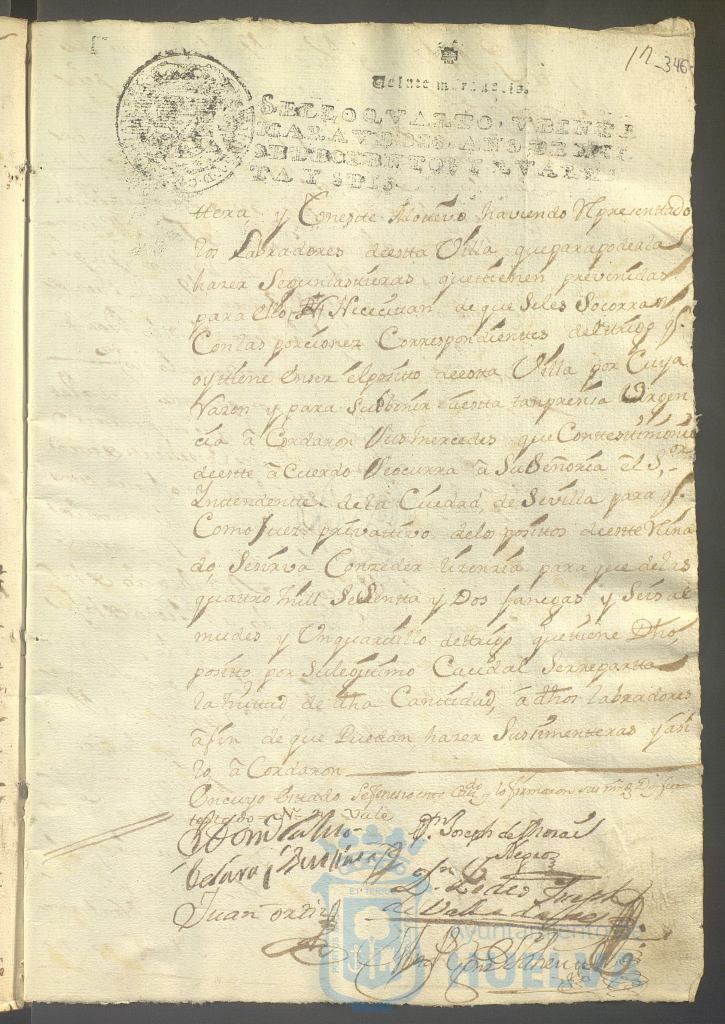 17 346
Veinte maravedis.
SELLO QVARTO, VEINTE
MARAVEDIS, AÑO DE MIL
SETECIENTOS Y QVAREN
TA Y SEIS
ttera y Coneste Motivo haviendo Representtado
los Labradores deestta Villa que para poder
hazer Segun las que ttienen prevenidas
para ello Necesitan de que Seles Socorra
Con las porciones Correspondientes del ttrigo q.
oy ttiene enser elposito deestta Villa por Cuya
Razon y para Subbenir a esta tan presisa Urgen
cia acordaron Sus mercedes que Con ttestimonio
deeste acuerdo Se ocurra a Su Señoria el S.or
Yntendente de la Ciudad de Sevilla para q.
Como Juez privativo delos positos deeste Reina
do Sesirva Conzeder lizenzia para que delas
quattro mill Sesentta y Dos fanegas y Seis al
mudes y Un quardillo dettrigo que ttiene Dho
positto por Su lexitimo Caudal Serreparta
la mittad de dha Canttidad, a dhos labradores
afin de que Puedan hazer Sus simentteras y asi
lo acordaron
En cuyo esttado Sefenesio este Cavdo y lo firmaron sus mrds
Vale
D.n Joseph de Moral
Negro
Juan ortiz
D.n Pedro Joseph
de Valladares
Ayuntamiento de
HUELVA